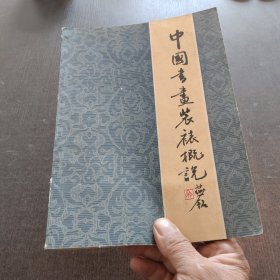 中國書畫裝裱概説